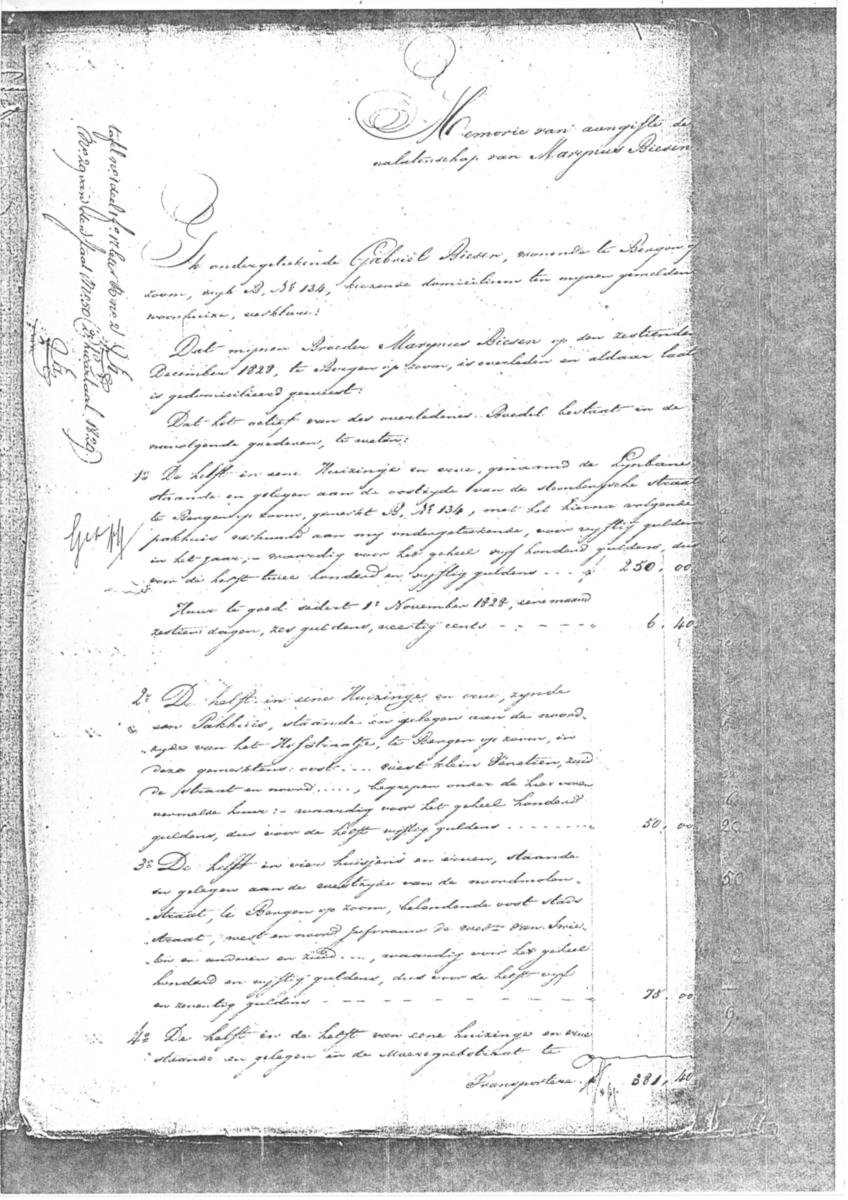 Memorie van aangifte de
nalatenschap van Marynus Biesen
Ik ondergetekende Gabriël Biesen, wonende te Bergen op
zoom, wyk B, No 134, kiezende domicilium ten mynen gemelden
woonhuize, verklare:
Dat mijnen Broeder Marynus Biesen op den zestienden
December 1828, te Bergen op zoom, is overleden en aldaar laat
is gedomicilieerd geweest:
Dat het actief van des overledenes Boedel bestaat in de
navolgende goederen, te weten:
1o De helft in eene Huizinge en erve, genaamd de Lynbane
staande en gelegen aan de oostzyde van de steenbergsche straat
te Bergen op zoom, gemerkt B, No 134, met het hierna volgende
pakhuis verhuurd aan my ondergetekende, voor vyftig gulden
in het jaar; - waardig voor het geheel vyf honderd guldens, dus
voor de helft twee honderd en vyftig guldens . . . . ƒ 250,00
Huur te goed sedert 1o November 1828, eene maand
zestien dagen, zes guldens, veertig cents - - - - - " 6,40
2o De helft in eene Huizinge en erve, zynde
een Pakhuis, staande en gelegen aan de noord-
zyde van het Hofstraatje, te Bergen op zoom, in
deze gemerktens: oost . . . . west klein Venetien, zuid
de straat en noord . . . . ., begrepen onder de hier voren
vermelde huur: - waardig voor het geheel honderd
guldens, dus voor de helft vyftig guldens . . . . . . . . " 50,00
3o De helft in vier huisjens en erven, staande
en gelegen aan de westzyde van de noordmolen-
straat, te Bergen op zoom, belendende oost stads
straat, west en noord Jufvrouw de wede van
en anderen en zuid . . . ., waardig voor het geheel
honderd en vyftig guldens, dus voor de helft vyf
en zeventig guldens - - - - - - - - - " 75,00
4o De helft in de helft van eene huizinge en erve
staande en gelegen in de Moeregrebstraat te
Transportere ƒ 381,40